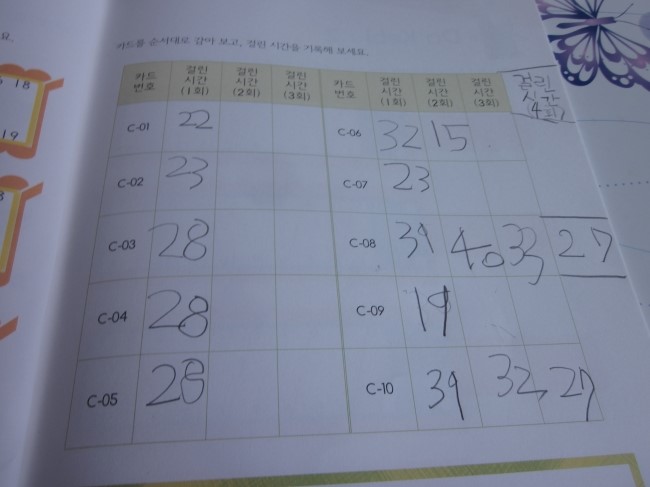 카드를 순서대로 감아 보고, 걸린 시간을 기록해 보세요.
카드 번호 걸린 시간 (1회) 걸린 시간 (2회) 걸린 시간 (3회) 카드 번호 걸린 시간 (1회) 걸린 시간 (2회) 걸린 시간 (3회) 걸린 시간 (4회)
C-01 22 C-06 32 15
C-02 23 C-07 23
C-03 28 C-08 39 40 33 27
C-04 28 C-09 19
C-05 28 C-10 39 32 27
요.
18
19